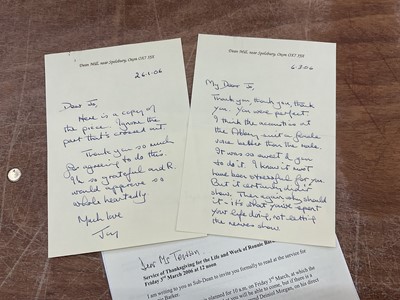 Dean Mill, near Spelsbury, Oxon OX7 3JR
26.1.06
Dear Jo,
Here is a copy of
the piece. Ignore the
part that's crossed out
Thank you so much
for agreeing to do this.
I'm so grateful and R.
would approve so
whole heartedly
Much love
Joy
Dean Mill, near Spelsbury, Oxon OX7 3JR
6.3.06
My Dear Jo,
Thank you, thank you, thank
you. You were perfect.
I think the acoustics at
the Abbey suit a female
voice better than the male.
It was so sweet of you
to do it. I know it must
have been stressful for you.
But it certainly didn't
show. Then again why should
it - it's what you've spent
your life doing, not letting
the nerves show.
Dear Ms
Service of Thanksgiving for the Life and Work of Ronnie
Friday 3rd March 2006 at 12 noon
I am writing to you as Sub-Dean to invite you formally to read at the service for
Barker.
planned for 10 a.m. on Friday 3rd March, at which the
you will be able to come, but if there is
Desirel Morgan, on his direct